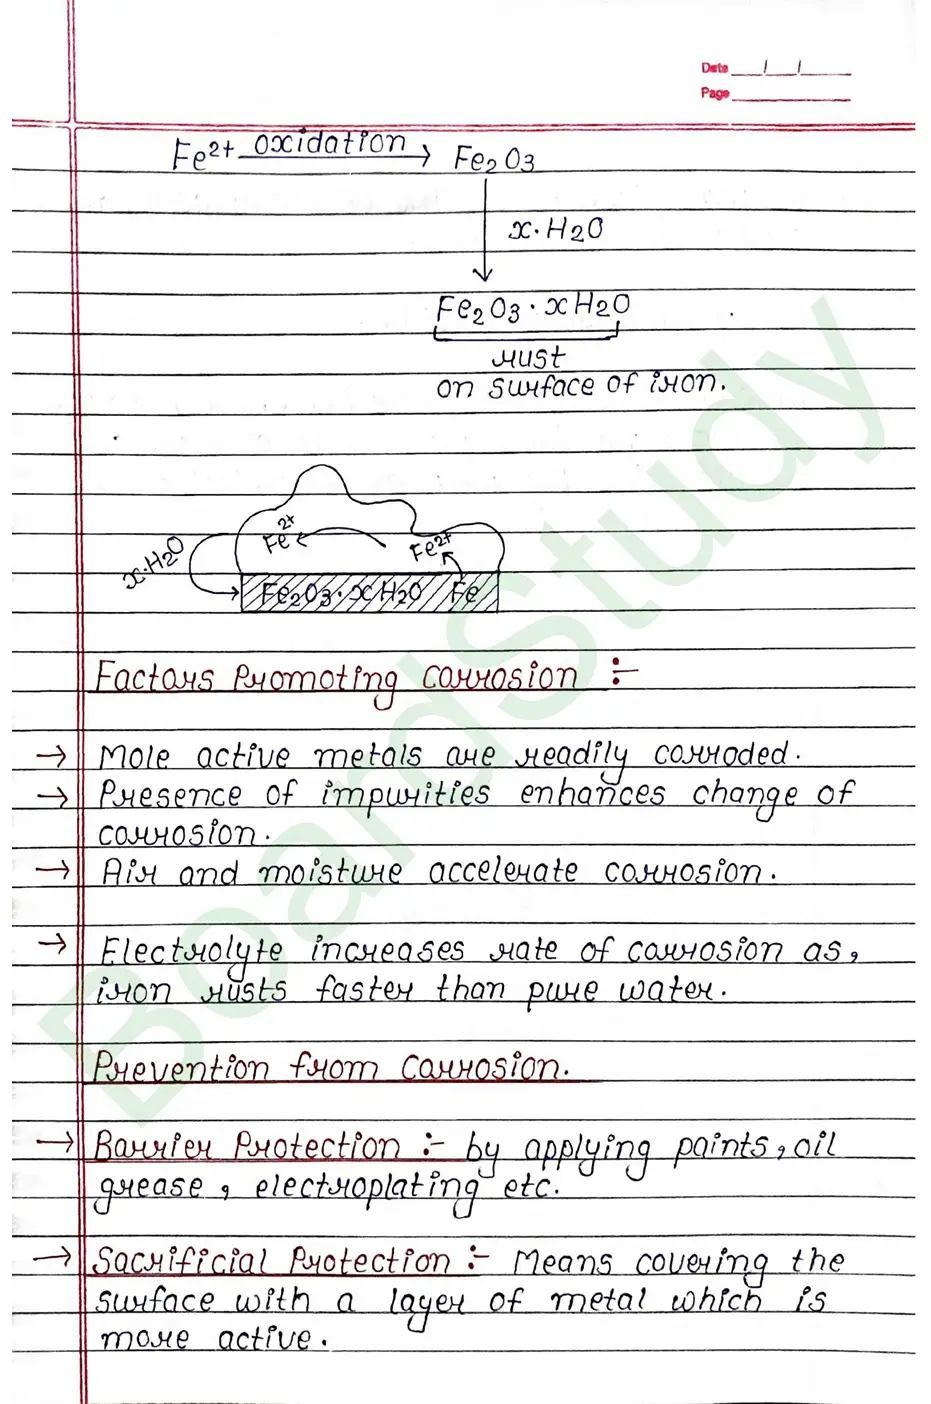 Date / /
Page
Fe2+ oxidation → Fe2O3
x·H2O
Fe2O3·xH2O
rust
on surface of iron.
Fe2+ Fe2+
x·H2O
Fe2O3·xH2O Fe
Factors Promoting Corrosion :-
→ Mole active metals are readily corroded.
→ Presence of impurities enhances change of
corrosion.
→ Air and moisture accelerate corrosion.
→ Electrolyte increases rate of corrosion as,
iron rusts faster than pure water.
Prevention from Corrosion.
→ Barrier Protection :- by applying paints, oil
grease, electroplating etc.
→ Sacrificial Protection :- Means covering the
surface with a layer of metal which is
more active.
BoardStudy